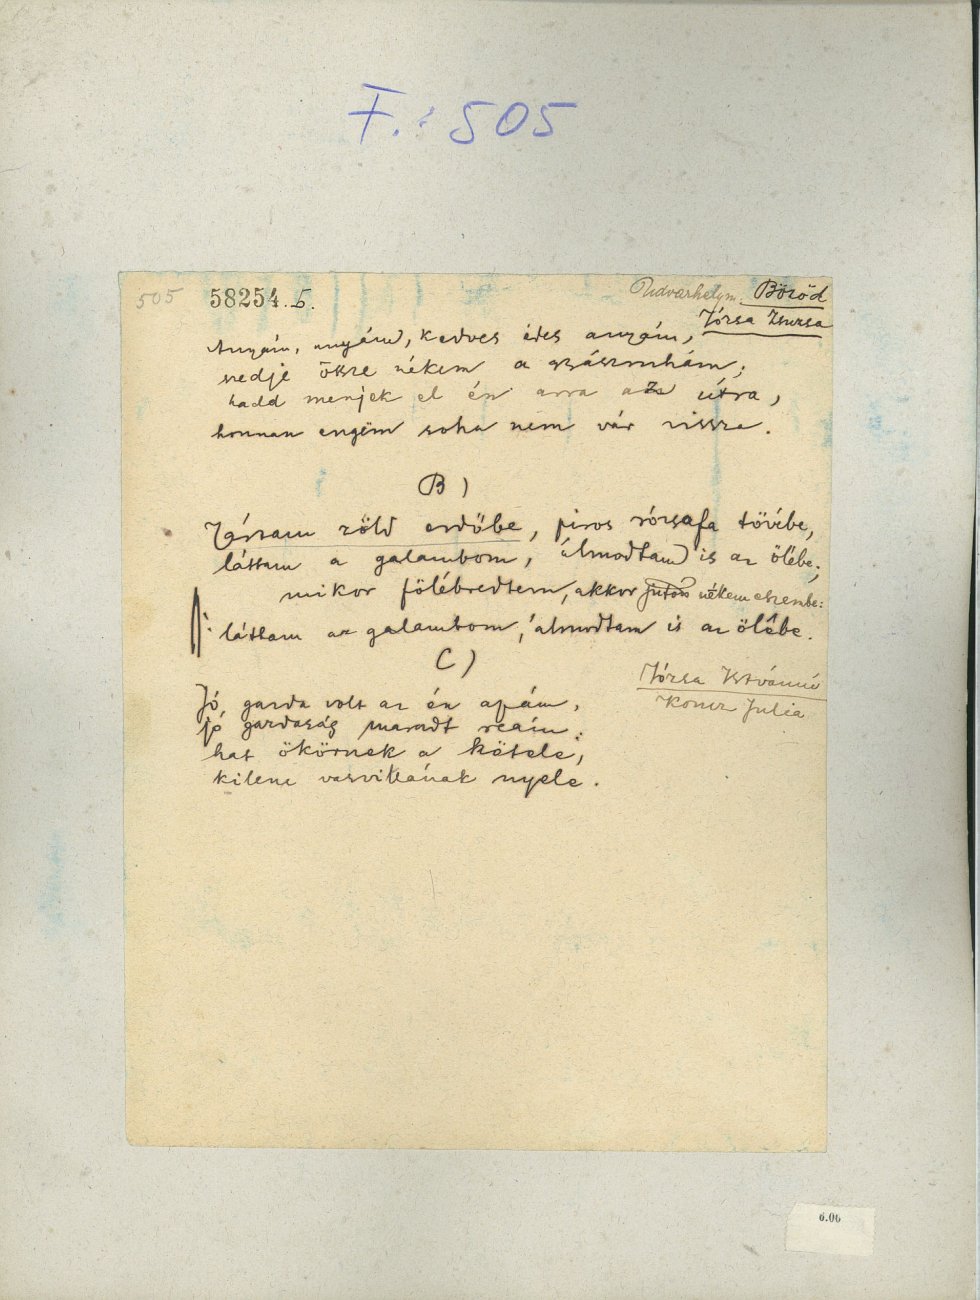 F.: 505
505 58254.5. Udvarhelym. Böződ
Józsa Zsuzsa
Anyám, anyám, kedves édes anyám,
szedje össze nékem a gyászruhám,
hadd menjek el én arra az útra,
honnan engëm soha nem vár vissza.
B)
Jártam zöld erdőbe, piros rózsafa tövébe,
láttam a galambom, álmodtam is az ölébe;
mikor fölébredtem, akkor jutott nékem eszembe:
láttam a galambom, álmodtam is az ölébe.
C)
Józsa Istvánné
Koncz Julia
Jó gazda volt az én apám,
jó gazdaság maradt reám:
hat ökörnek a kötele,
kilenc vasvillának nyele.
6.06